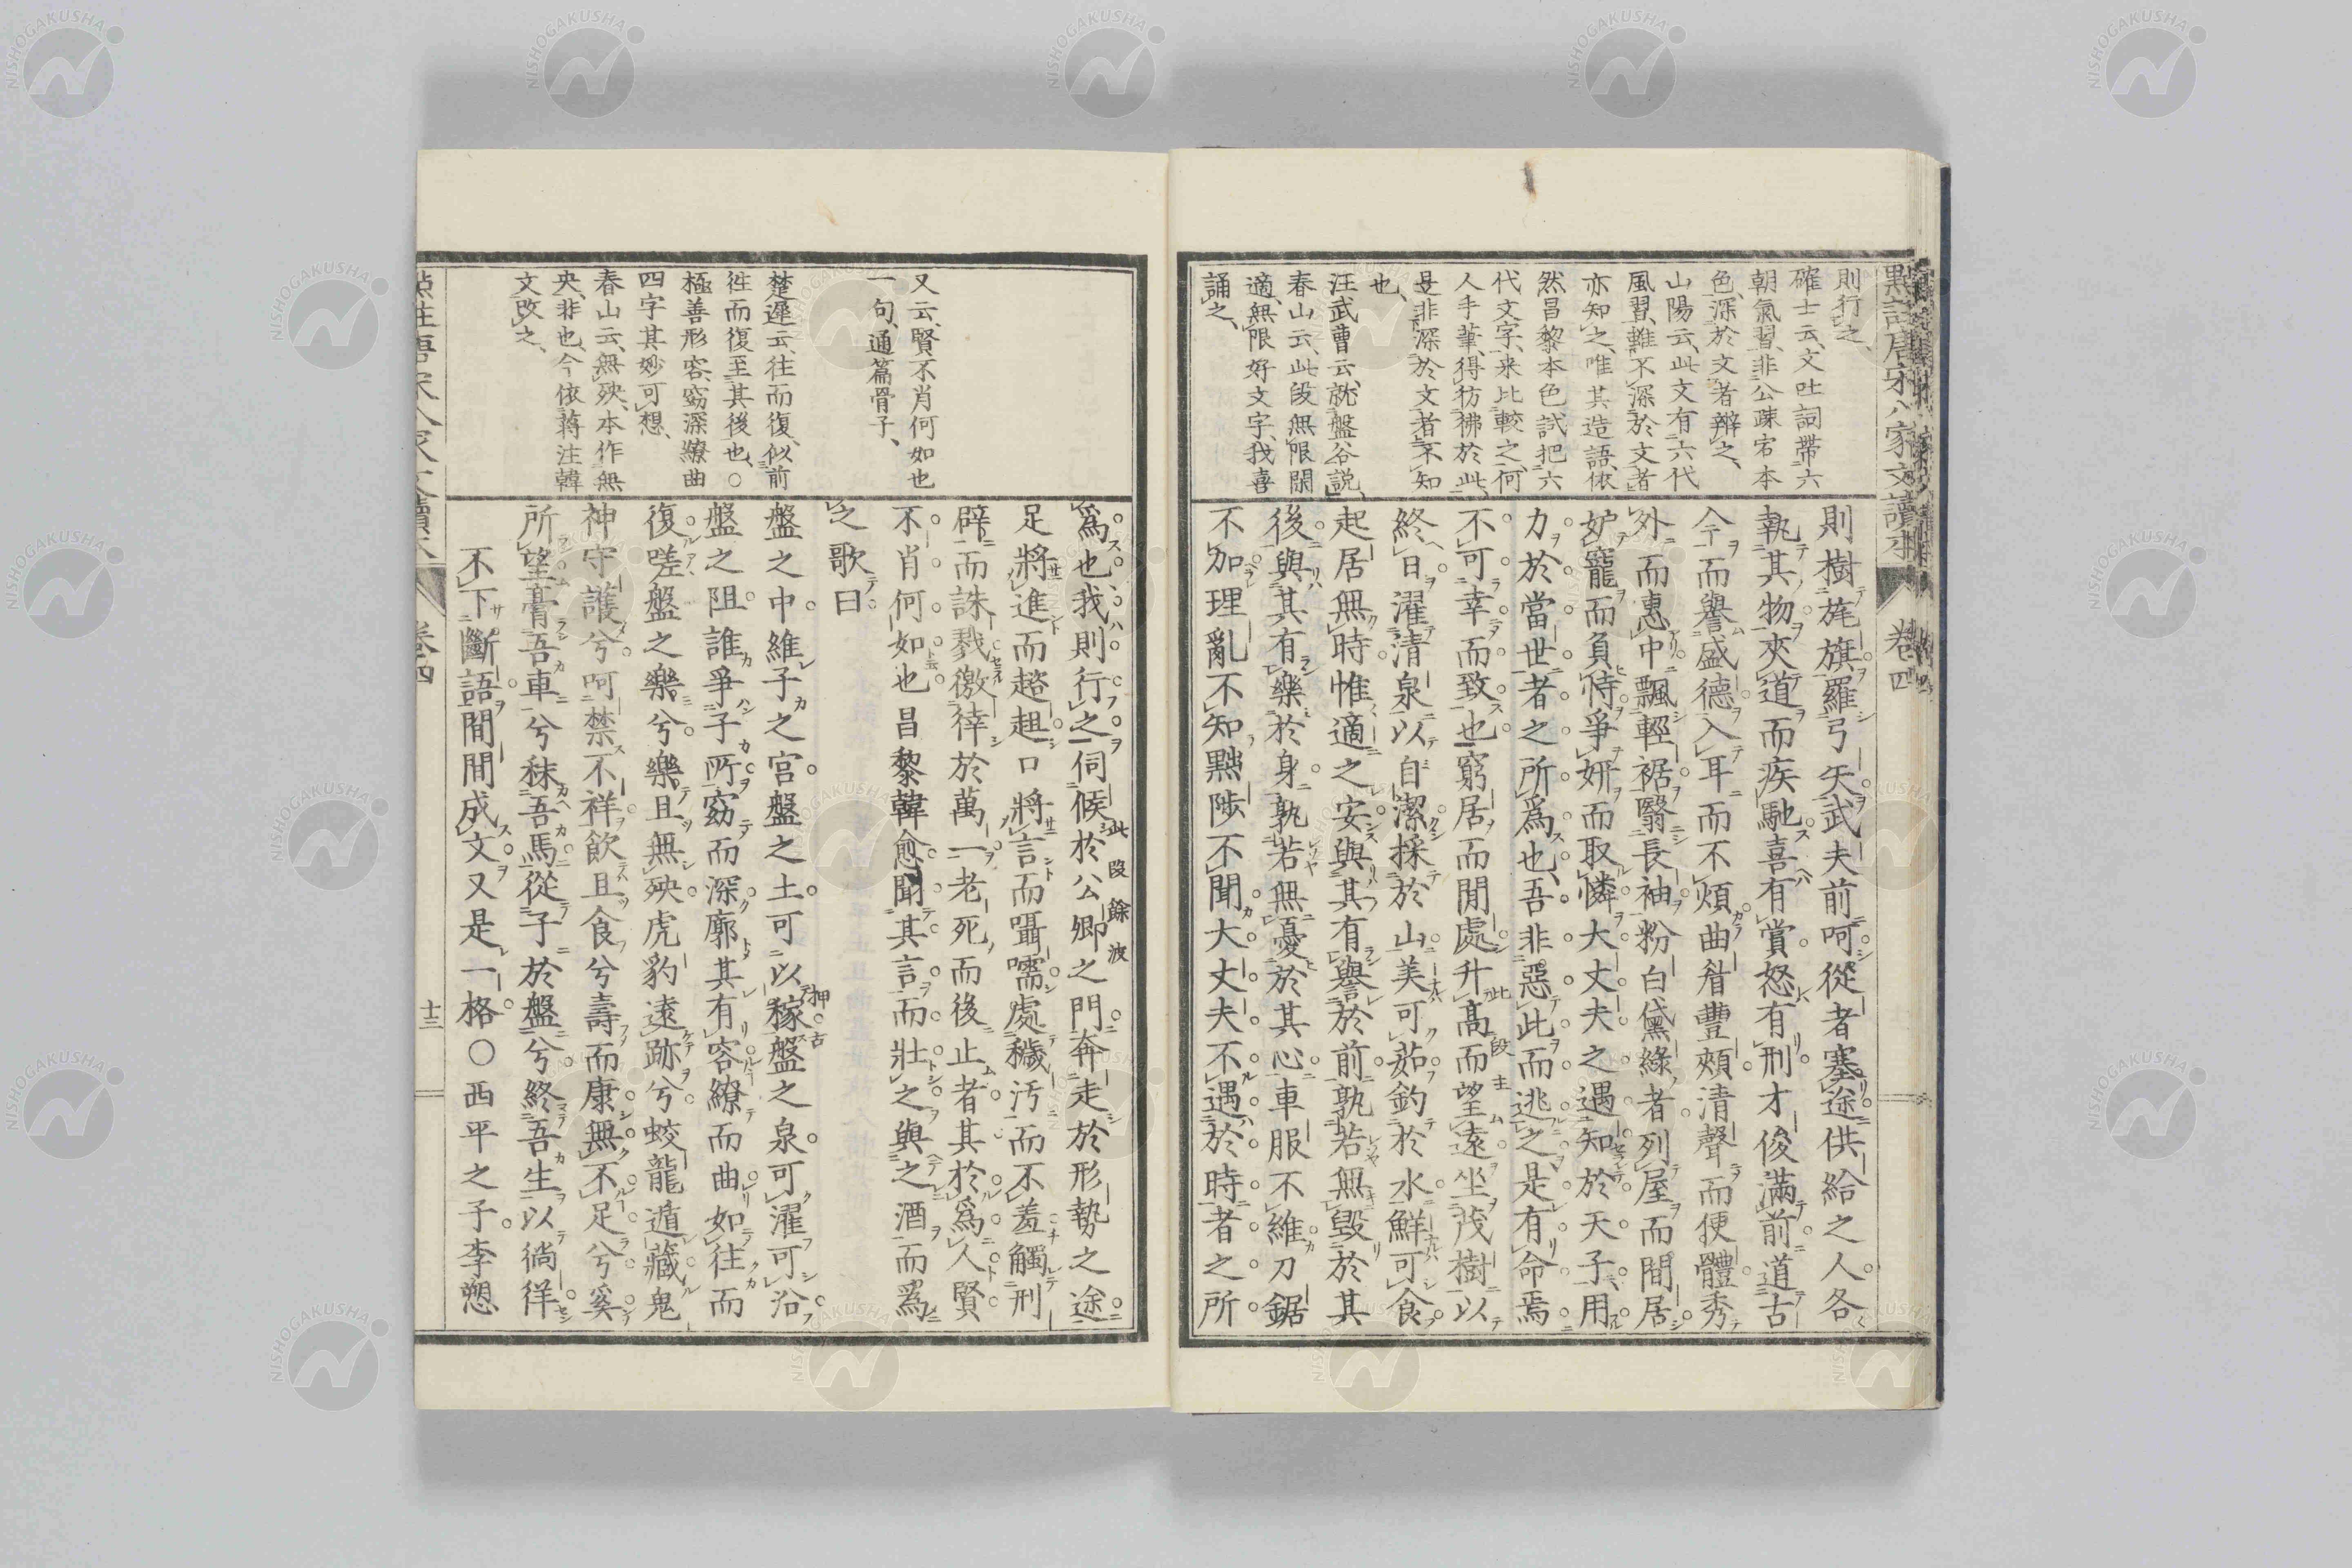 則行之、
確士云、文吐詞帶六
朝氣習、非公疎宕本
色、深於文者辯之、
山陽云、此文有六代
風習、雖不深於文者
亦知之、唯其造語、依
然昌黎本色、試把六
代文字、来比較之、何
人手筆、得彷彿於此、
是非深於文者、不知
也、
汪武曹云、就盤谷説、
春山云、此段無限閑
適、無限好文字、我喜
誦之、
則樹旄旗羅弓矢武夫前呵從者塞途供給之人各
執其物夾道而疾馳喜有賞怒有刑才俊滿前道古
今而譽盛德入耳而不煩曲眉豐頰清聲而便體秀
外而惠中飄輕裾翳長袖粉白黛綠者列屋而閒居
妒寵而負恃爭妍而取憐大丈夫之遇知於天子用
力於當世者之所爲也、吾非惡此而逃之是有命焉
不可幸而致也窮居而閒處升高而望遠坐茂樹以
終日濯清泉以自潔採於山美可茹釣於水鮮可食
起居無時惟適之安與其有譽於前孰若無毀於其
後與其有樂於身孰若無憂於其心車服不維刀鋸
不加理亂不知黜陟不聞大丈夫不遇於時者之所
此段主
點註唐宋八家文讀本
卷四
又云、賢不肖何如也
一句、通篇骨子、
楚遲云、往而復、似前
徃而復至其後也、○
極善形容、窈深繚曲
四字其妙可想、
春山云、無殃、本作無
央、非也、今依蒋注韓
文改之、
爲也我則行之伺候於公卿之門奔走於形勢之途
足將進而趑趄口將言而囁嚅處穢汚而不羞觸刑
辟而誅戮徼倖於萬一老死而後止者其於爲人賢
不肖何如也昌黎韓愈聞其言而壯之與之酒而爲
之歌曰
盤之中維子之宮盤之土可以稼盤之泉可濯可沿
盤之阻誰爭子所窈而深廓其有容繚而曲如往而
復嗟盤之樂兮樂且無殃虎豹遠跡兮蛟龍遁藏鬼
神守護兮呵禁不祥飲且食兮壽而康無不足兮奚
所望膏吾車兮秣吾馬從子於盤兮終吾生以徜徉
不下斷語間間成文又是一格○西平之子李愬
此段餘波
押古
卷四
十三